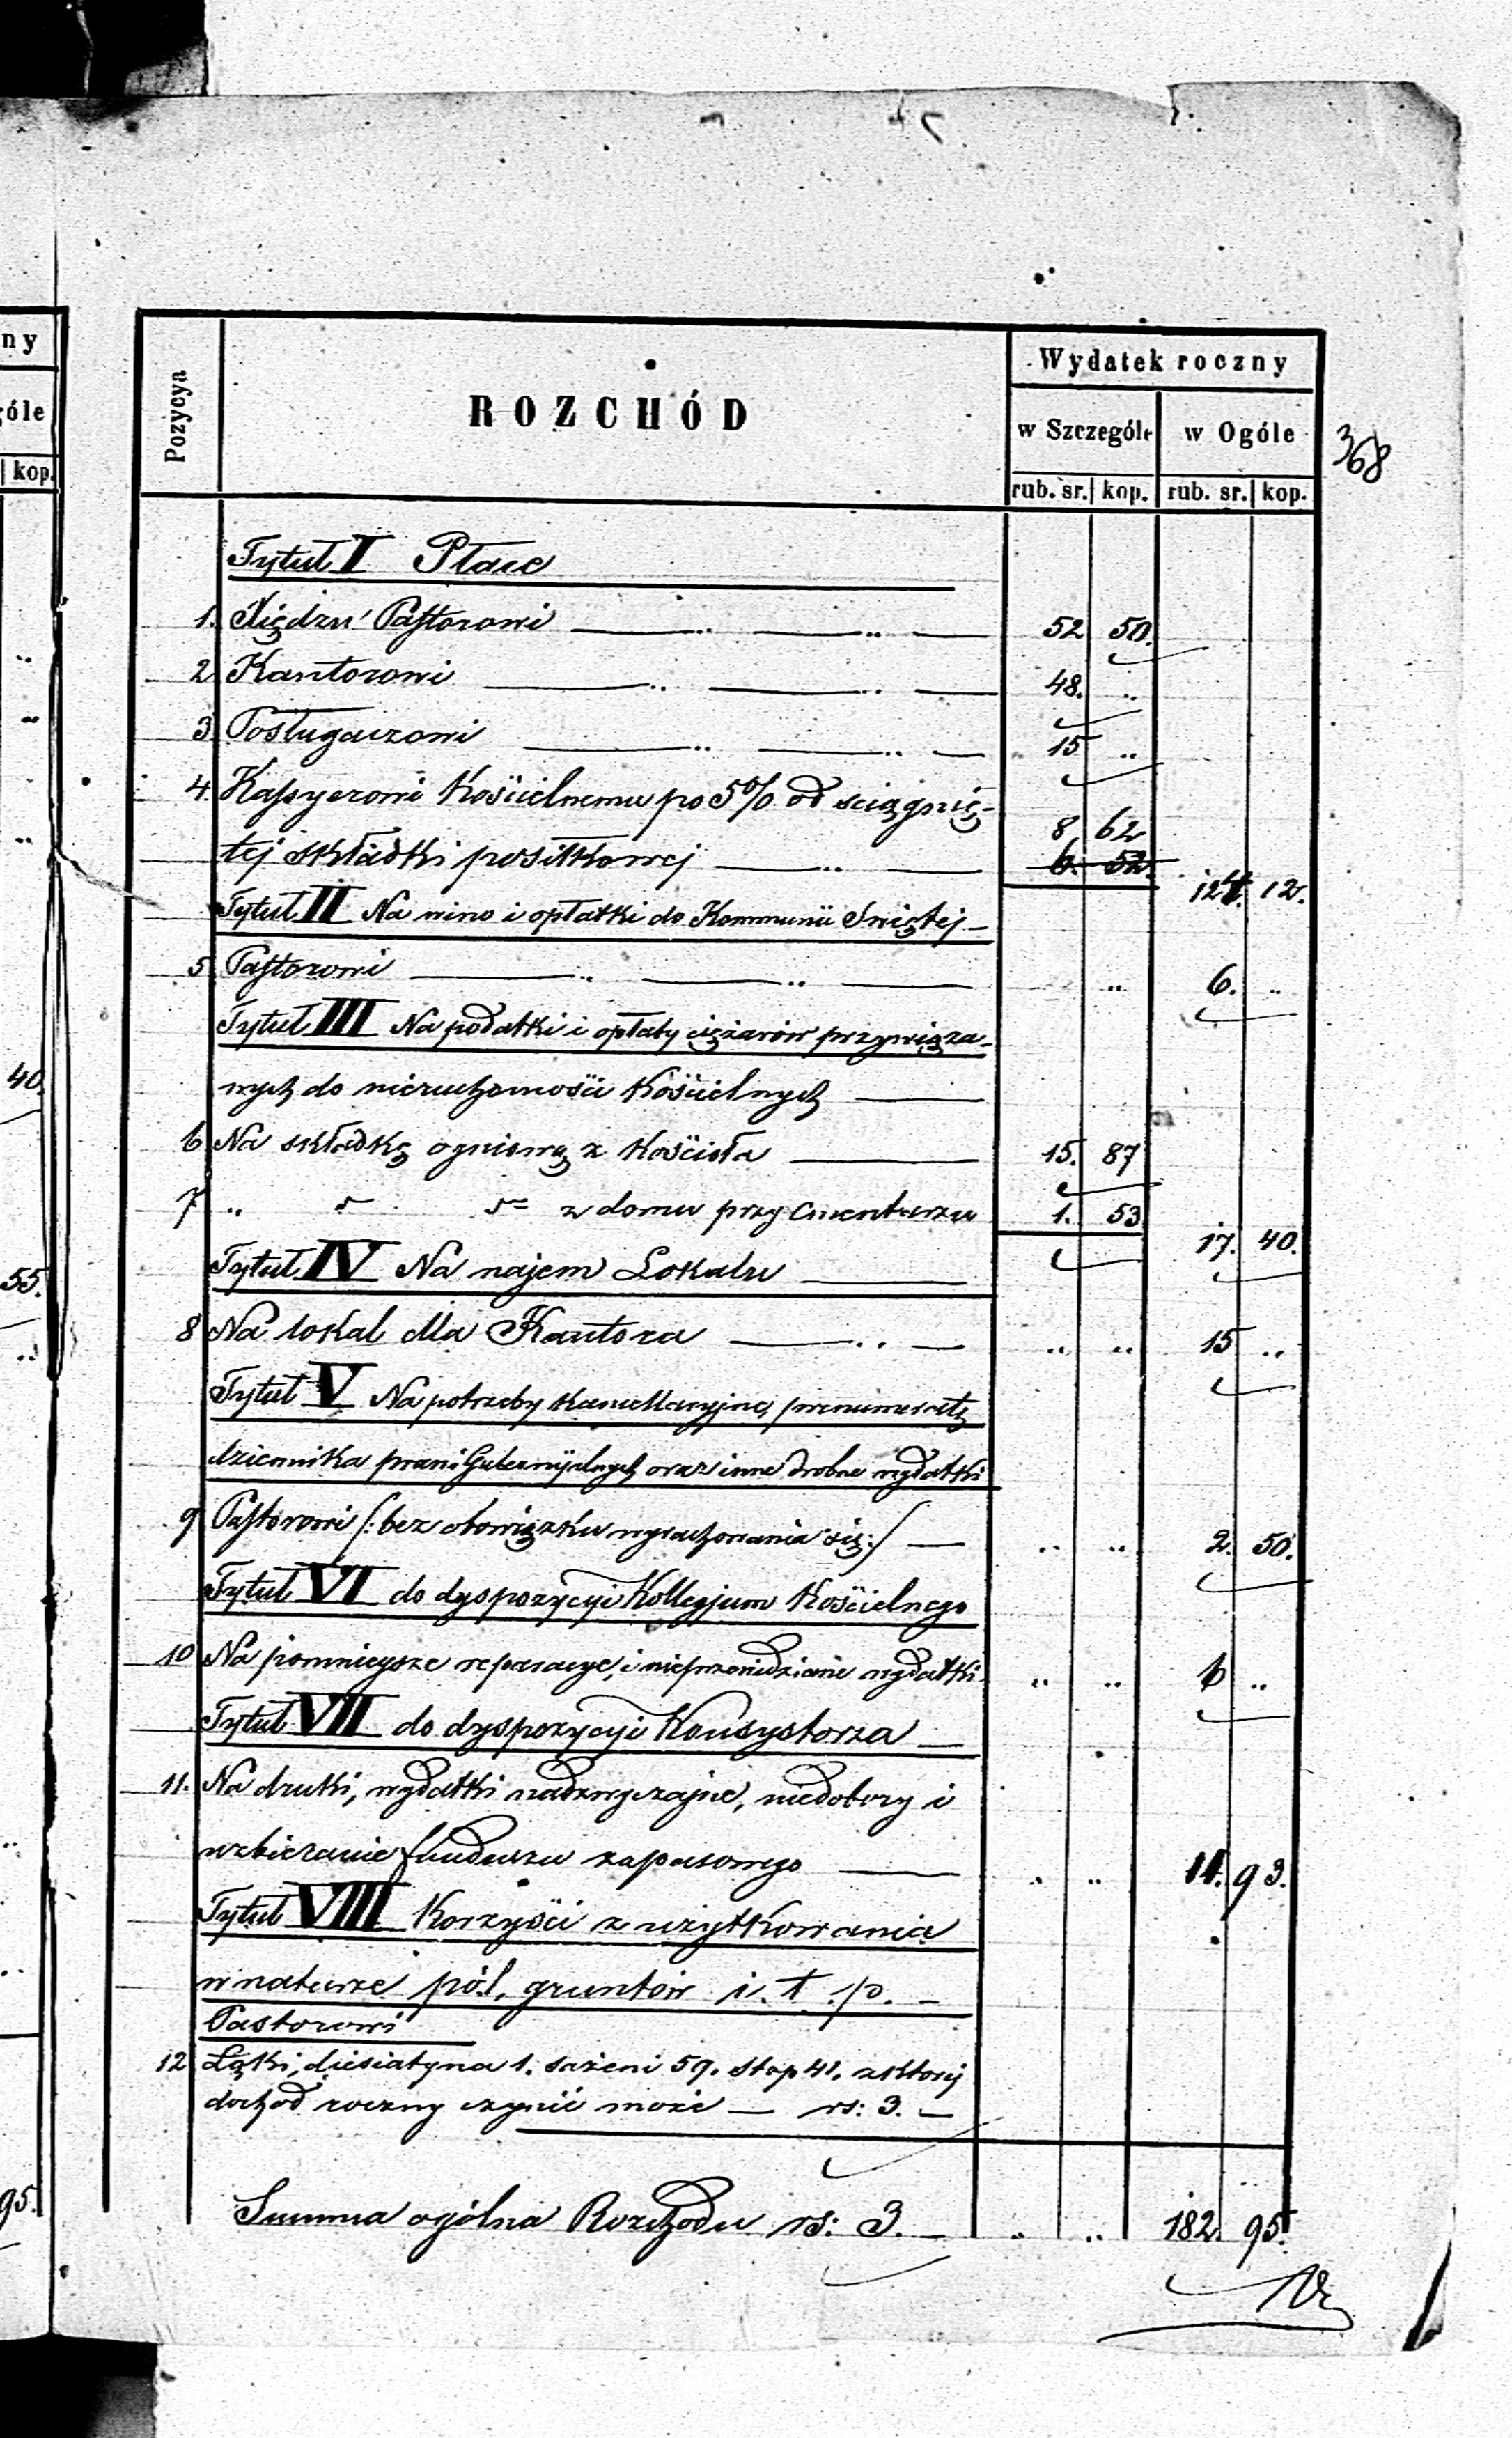 ny
góle
kop.
40.
55.
95.
368
Pozycya
ROZCHÓD
Wydatek roczny
w Szczególe w Ogóle
rub. sr. kop. rub. sr. kop.
Tytuł I Płace
1. Xiędzu Pastorowi 52 50.
2 Kantorowi 48. ..
3 Posługaczowi 15 ..
4. Kassyerowi Kościelnemu po 5% od sciągnię-
tej składki posiłkowej 8 62
6. 52. 124. 12.
Tytuł II Na wino i opłatki do Kommunii Swiętej
5 Pastorowi .. 6. ..
Tytuł III Na podatki i opłaty ciężarów przywiąza-
nych do nieruchomości Kościelnych
6 Na składkę ogniową z Kościoła 15. 87
7 " " z domu przy Cmentarzu 1. 53
17. 40.
Tytuł IV Na najem Lokalu
8 Na lokal dla Kantora .. .. 15 ..
Tytuł V Na potrzeby Kancellaryjne, prenumeratę
dziennika praw i Gubernijalnych oraz inne drobne wydatki
9 Pastorowi /: bez obowiązku wyrachowania się :/ .. .. 2. 50.
Tytuł VI do dyspozycyi Kollegjum Kościelnego
10 Na pomniejsze reparacye, i nieprzewidziane wydatki .. .. 6 ..
Tytuł VII do dyspozycyi Konsystorza
11. Na druki, wydatki nadzwyczajne, niedobory i
uzbieranie funduszu zapasowego .. .. 11. 93.
Tytuł VIII Korzyści z użytkowania
w naturze pól, gruntów i. t. p.
Pastorowi
12 Łąki, diesiatyna 1. sażeni 59. stop 41. z której
dochód roczny czynić może — rs: 3. —
Summa ogólna Rozchodu rs: 3. — .. .. 182. 95.